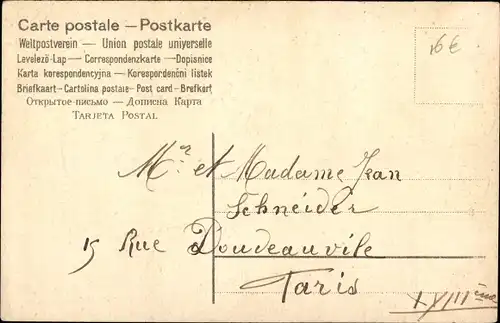 Carte postale — Postkarte
Weltpostverein — Union postale universelle
Levelező-Lap — Correspondenzkarte — Dopisnice
Karta korespondencyjna — Korespondenční lístek
Briefkaart — Cartolina postale — Post card — Brefkort
Открытое письмо — Дописна Карта
TARJETA POSTAL
6€
Mr et Madame Jean
Schnéider
15 Rue Doudeauvile
Paris
XVIIIème